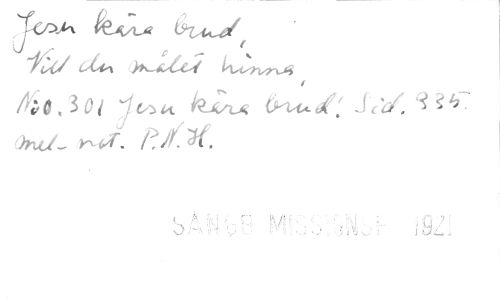 Jesu kära brud,
Vill du målet hinna,
No. 301 Jesu kära brud! Sid. 335.
mel-not. P.N.H.
SÅNGB MISSIONSF 1921